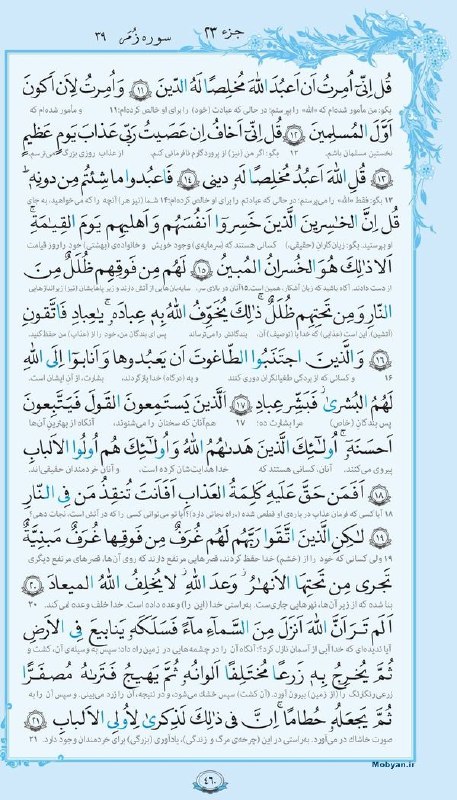 جزء ۲۳
سوره زُمَر ۳۹
قُل اِنّی اُمِرتُ اَن اَعبُدَ اللهَ مُخلِصًا لَهُ الدّینَ ۱۱ وَ اُمِرتُ لِاَن اَکونَ
بگو: من مأمور شده‌ام که «الله» را بپرستم؛ در حالی که عبادت (خود) را برای او خالص کرده‌ام؛ ۱۱ و مأمور شده‌ام که
اَوَّلَ المُسلِمینَ ۱۲ قُل اِنّی اَخافُ اِن عَصَیتُ رَبّی عَذابَ یَومٍ عَظیمٍ
نخستین مسلمان باشم. ۱۲ بگو: اگر من (نیز) از پروردگارم نافرمانی کنم، از عذاب روزی بزرگ می‌ترسم.
۱۳ قُلِ اللهَ اَعبُدُ مُخلِصًا لَهُ دینی ۱۴ فَاعبُدوا ما شِئتُم مِن دونِهِ
۱۳ بگو: فقط «الله» را می‌پرستم؛ در حالی که عبادتم را برای او خالص کرده‌ام؛ ۱۴ شما (نیز هر) آنچه را که می‌خواهید، به جای
قُل اِنَّ الخٰسِرینَ الَّذینَ خَسِروا اَنفُسَهُم وَ اَهلیهِم یَومَ القِیٰمَةِ
او بپرستید. بگو: زیان‌کاران (حقیقی)، کسانی هستند که (سرمایه‌ی) وجود خویش و خانواده‌ی (بهشتی) خود را روز قیامت
اَلا ذٰلِكَ هُوَ الخُسرانُ المُبینُ ۱۵ لَهُم مِن فَوقِهِم ظُلَلٌ مِنَ
از دست دادند. آگاه باشید که زیان آشکار، همین است. ۱۵ آنان در بالای سر، سایه‌بان‌هایی از آتش دارند و زیر پاهایشان (نیز) زیراندازهایی
النّارِ وَ مِن تَحتِهِم ظُلَلٌ ذٰلِكَ یُخَوِّفُ اللهُ بِه عِبادَه یٰعِبادِ فَاتَّقونِ
(آتشین). این است (عذابی) که خدا با (توصیف) آن، بندگانش را می‌ترساند. پس ای بندگان من، خود را از (عذاب) من حفظ کنید.
۱۶ وَ الَّذینَ اجتَنَبُوا الطّاغوتَ اَن یَعبُدوها وَ اَنابوا اِلَی اللهِ
۱۶ و کسانی که از بردگی طغیانگران دوری کنند و به (درگاه) خدا بازگردند، بشارت، از آنِ ایشان است.
لَهُمُ البُشریٰ فَبَشِّر عِبادِ ۱۷ الَّذینَ یَستَمِعونَ القَولَ فَیَتَّبِعونَ
پس بندگان (خاص) مرا بشارت ده: ۱۷ هم‌آنان که سخنان را می‌شنوند، آنگاه از بهترین آن‌ها
اَحسَنَه اُولٰئِكَ الَّذینَ هَدٰىهُمُ اللهُ وَ اُولٰئِكَ هُم اُولُوا الاَلبابِ
پیروی می‌کنند. آنان، کسانی هستند که خدا هدایتشان کرده است، و آنان خردمندان حقیقی‌اند.
۱۸ اَفَمَن حَقَّ عَلَیهِ کَلِمَةُ العَذابِ اَفَاَنتَ تُنقِذُ مَن فِی النّارِ
۱۸ آیا کسی که فرمان عذاب در باره‌ی او قطعی شده (راه نجاتی دارد)؟ آیا تو می‌توانی کسی را که در آتش است، نجات دهی؟
۱۹ لٰکِنِ الَّذینَ اتَّقَوا رَبَّهُم لَهُم غُرَفٌ مِن فَوقِها غُرَفٌ مَبنِیَّةٌ
۱۹ ولی کسانی که خود را از (خشم) خدا حفظ کردند، قصرهایی مرتفع دارند که روی آن‌ها، قصرهای مرتفع دیگری
تَجری مِن تَحتِهَا الاَنهٰرُ وَعدَ اللهِ لا یُخلِفُ اللهُ المیعادَ ۲۰
بنا شده که از زیر آن‌ها، نهرهایی جاری‌ست. به‌راستی خدا (این را) وعده داده است. خدا خلف وعده نمی‌کند. ۲۰
اَلَم تَرَ اَنَّ اللهَ اَنزَلَ مِنَ السَّماءِ ماءً فَسَلَکَه یَنابیعَ فِی الاَرضِ
آیا ندیده‌ای که خدا آبی از آسمان نازل کرد؛ آنگاه آن را در چشمه‌هایی در زمین راه داد؛ سپس به وسیله‌ی آن، کشت و
ثُمَّ یُخرِجُ بِه زَرعًا مُختَلِفًا اَلوانُه ثُمَّ یَهیجُ فَتَرٰىهُ مُصفَرًّا
زرعی رنگارنگ را (از زمین) بیرون آورد. (آن کشت) سپس خشک می‌شود، و در نتیجه، آن را زرد می‌بینی. و سپس آن را به
ثُمَّ یَجعَلُه حُطامًا اِنَّ فی ذٰلِكَ لَذِکریٰ لِاُولِی الاَلبابِ ۲۱
صورت خاشاک در می‌آورد. به‌راستی در این (چرخه‌ی مرگ و زندگی)، یادآوری (بزرگی) برای خردمندان وجود دارد. ۲۱
Mobyan.ir
۴۶۰